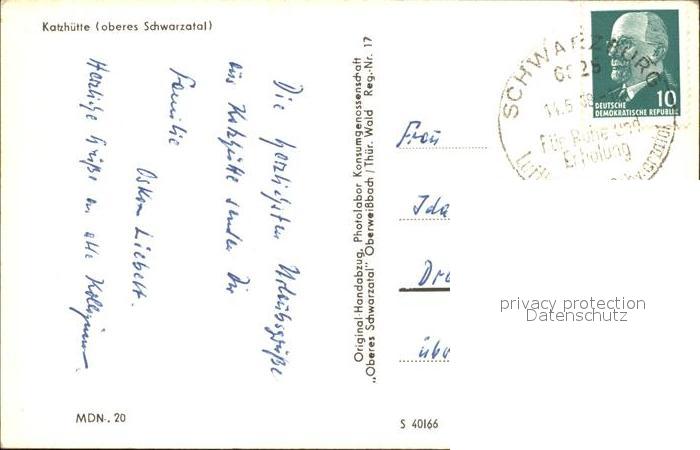 Katzhütte (oberes Schwarzatal)
Die herzlichsten Urlaubsgrüße
aus Katzhütte sendet Dir
Familie
Oskar Liebert.
Herzliche Grüße an alle Kolleginnen.
MDN-, 20
Original-Handabzug, Photolabor Konsumgenossenschaft
„Oberes Schwarzatal" Oberweißbach/Thür. Wald Reg.-Nr. 17
S 40166
SCHWARZBURG
Für Ruhe und
Erholung
10
DEUTSCHE
DEMOKRATISCHE REPUBLIK
Frau
Ida
privacy protection
Datenschutz